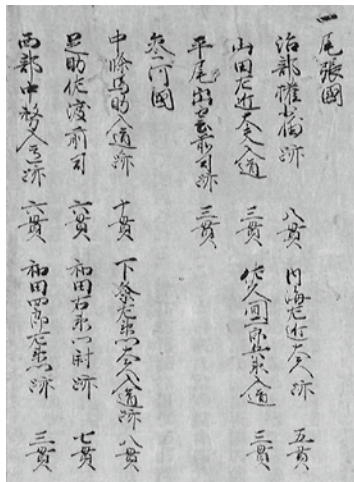 一尾張國
治部権少輔跡 八貫 内海左近大夫跡 五貫
山田左近大夫入道 三貫 佐久間二郎兵衛入道 三貫
平尾出雲前司跡 三貫
参河國
中條馬助入道跡 十貫 下条左衛門大夫入道跡 八貫
足助佐渡前司 六貫 和田右衛門尉跡 七貫
西部中務入道跡 六貫 和田四郎左衛門跡 三貫